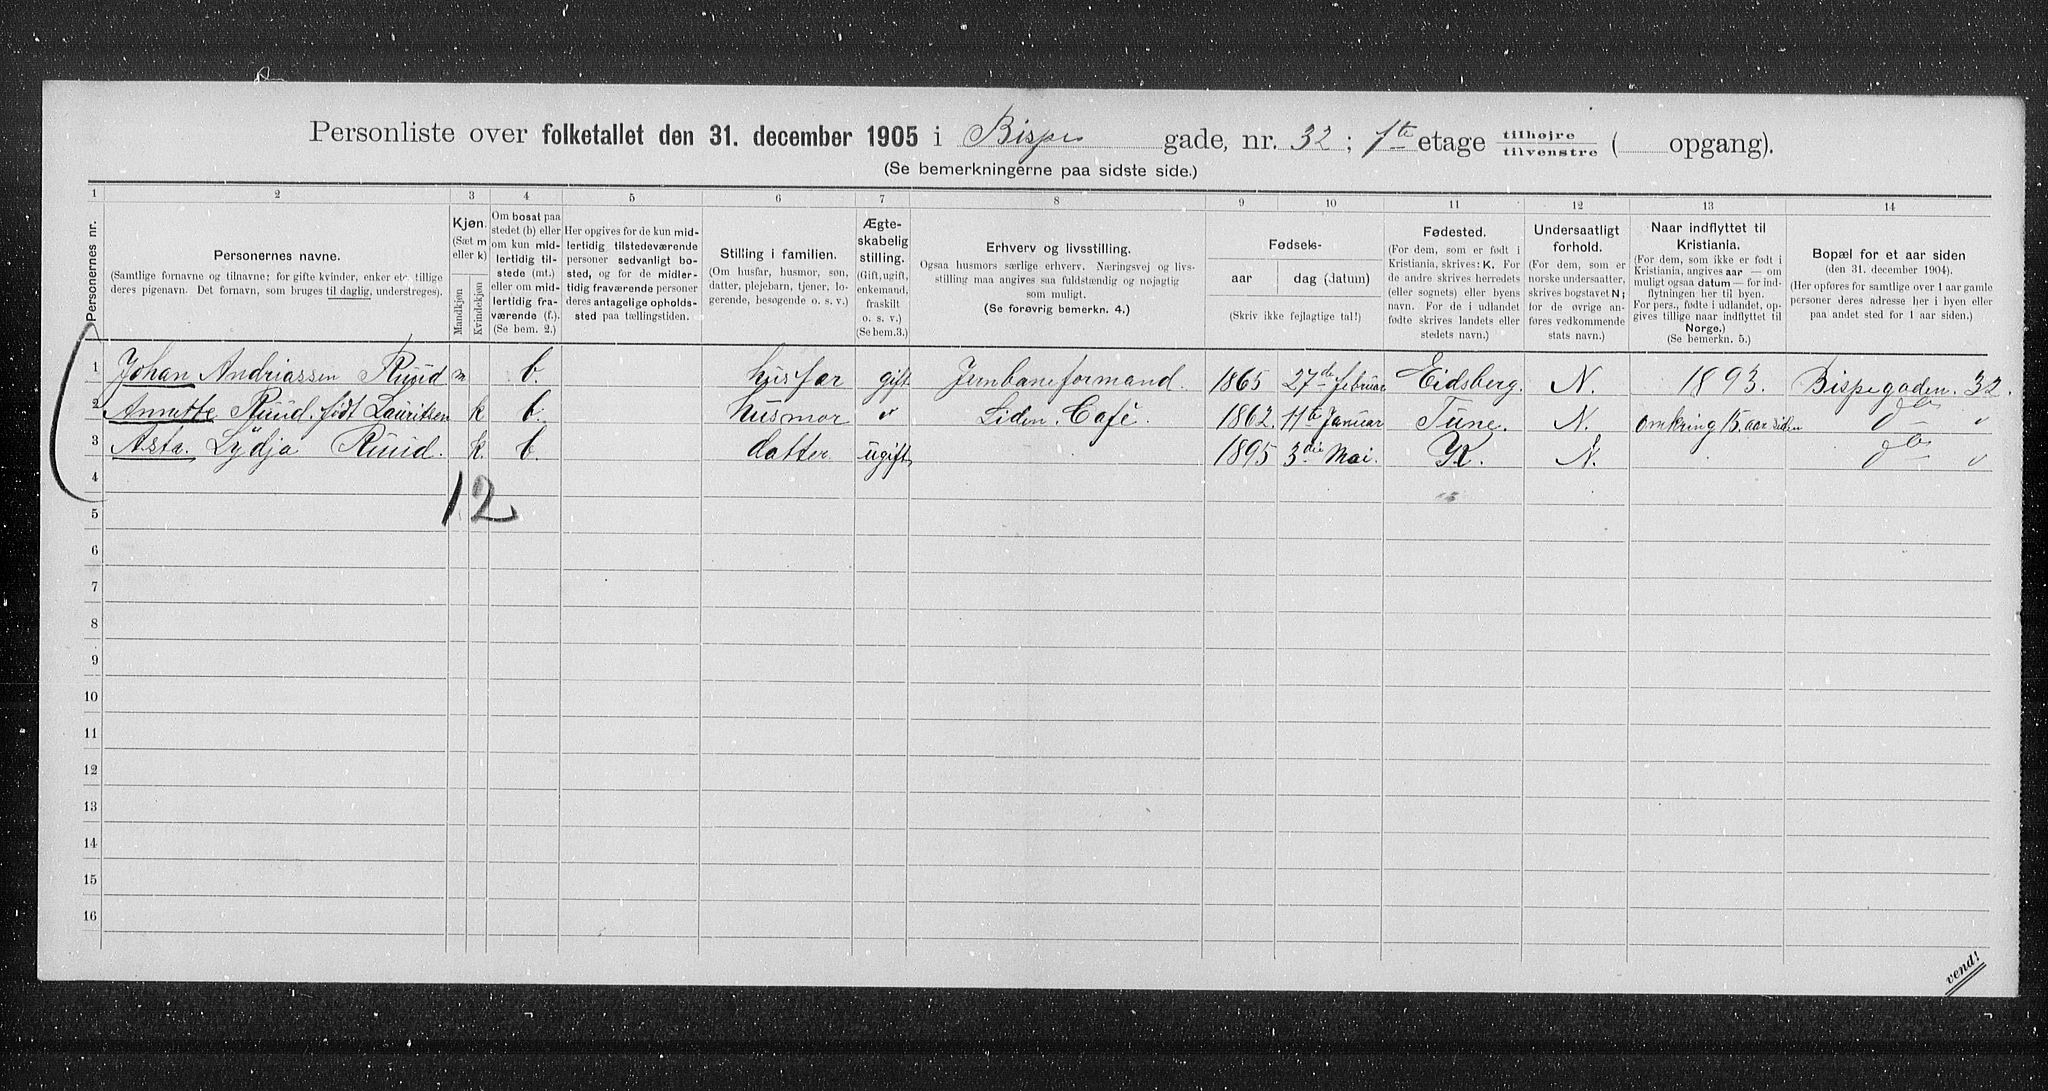 Personliste over folketallet den 31. december 1905 i Bispe gade, nr. 32 ; 1te etage tilhøjre tilvenstre ( opgang).
(Se bemerkningerne paa sidste side.)
1 2 3 4 5 6 7 8 9 10 11 12 13 14
Personernes nr.
Personernes navne.
(Samtlige fornavne og tilnavne; for gifte kvinder, enker etc. tillige
deres pigenavn. Det fornavn, som bruges til daglig, understreges).
Kjøn.
(Sæt m
eller k)
Mandkjøn
Kvindekjøn
Om bosat paa
stedet (b) eller
om kun mid-
lertidig til-
stede (mt.)
eller om mid-
lertidig fra-
værende (f.).
(Se bem. 2.)
Her opgives for de kun mid-
lertidig tilstedeværende
personer sedvanlig bo-
sted, og for de midler-
tidig fraværende personer
deres antagelige opholds-
sted paa tællingstiden.
Stilling i familien.
(Om husfar, husmor, søn,
datter, plejebarn, tjener, lo-
gerende, besøgende o. s. v.)
Ægte-
skabelig
stilling.
(Gift, ugift,
enkemand,
fraskilt
o. s. v.)
(Se bem.3.)
Erhverv og livsstilling.
Ogsaa husmors særlige erhverv. Næringsvej og livs-
stilling maa angives saa fuldstændig og nøjagtig
som muligt.
(Se forøvrig bemerkn. 4.)
Fødsels-
aar dag (datum)
(Skriv ikke fejlagtige tal!)
Fødested.
(For dem, som er født i
Kristiania, skrives: K. For
de andre skrives herredets
(eller sognets) eller byens
navn. For de i udlandet
fødte skrives landets eller
stedets navn.)
Undersaatligt
forhold.
(For dem, som er
norske undersaatter,
skrives bogstavet N;
for de øvrige an-
føres vedkommende
stats navn.)
Naar indflyttet til
Kristiania.
(For dem, som ikke er født i
Kristiania, angives aar — om
muligt ogsaa datum — for ind-
flytningen her til byen.
For pers., fødte i udlandet, op-
gives tillige naar indflyttet til
Norge.)
(Se bemerkn. 5.)
Bopæl for et aar siden
(den 31. december 1904).
(Her opføres for samtlige over 1 aar gamle
personer deres adresse her i byen eller
paa andet sted for 1 aar siden.)
1 Johan Andriassen Ruud m b. husfar gift Jernbaneformand. 1865 27de februar Eidsberg. N. 1893. Bispegaden. 32.
2 Annette Ruud. født Lauritsen k b. husmor " Liden. Café. 1862. 11te Januar Tune. N. omkring 15. aar siden do "
3 Asta. Lydja Ruud. k. b. datter. ugift 1895 3die Mai. K. N. do "
4
12
5
6
7
8
9
10
11
12
13
14
15
16
vend!